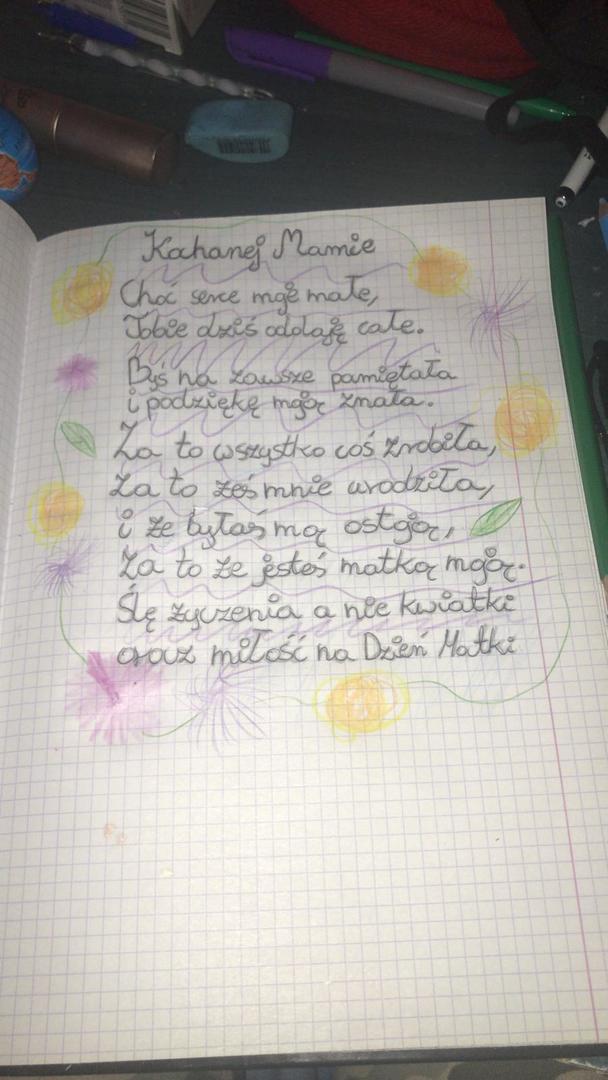 Kochanej Mamie
Choć serce moje małe,
Tobie dziś oddaję całe.
Byś na zawsze pamiętała
i podziękę moją znała.
Za to wszystko coś zrobiła,
Za to żeś mnie urodziła,
i że byłaś mą ostoją,
Za to że jesteś matką moją.
Ślę życzenia a nie kwiatki
oraz miłość na Dzień Matki